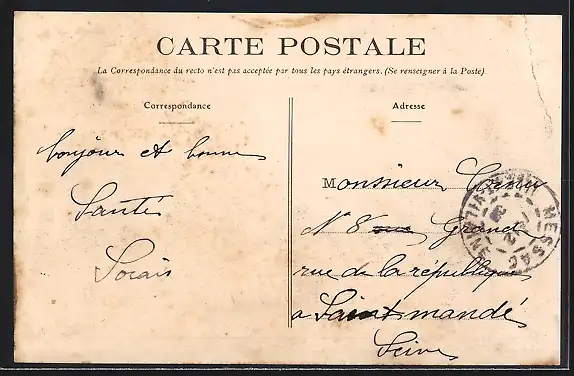 CARTE POSTALE
La Correspondance du recto n'est pas acceptée par tous les pays étrangers. (Se renseigner à la Poste)
Correspondance
bonjour et bonne
Santé
Adresse
Monsieur
N 8 Grand
rue de la république
a Saint mandé
Seine
MESSAC